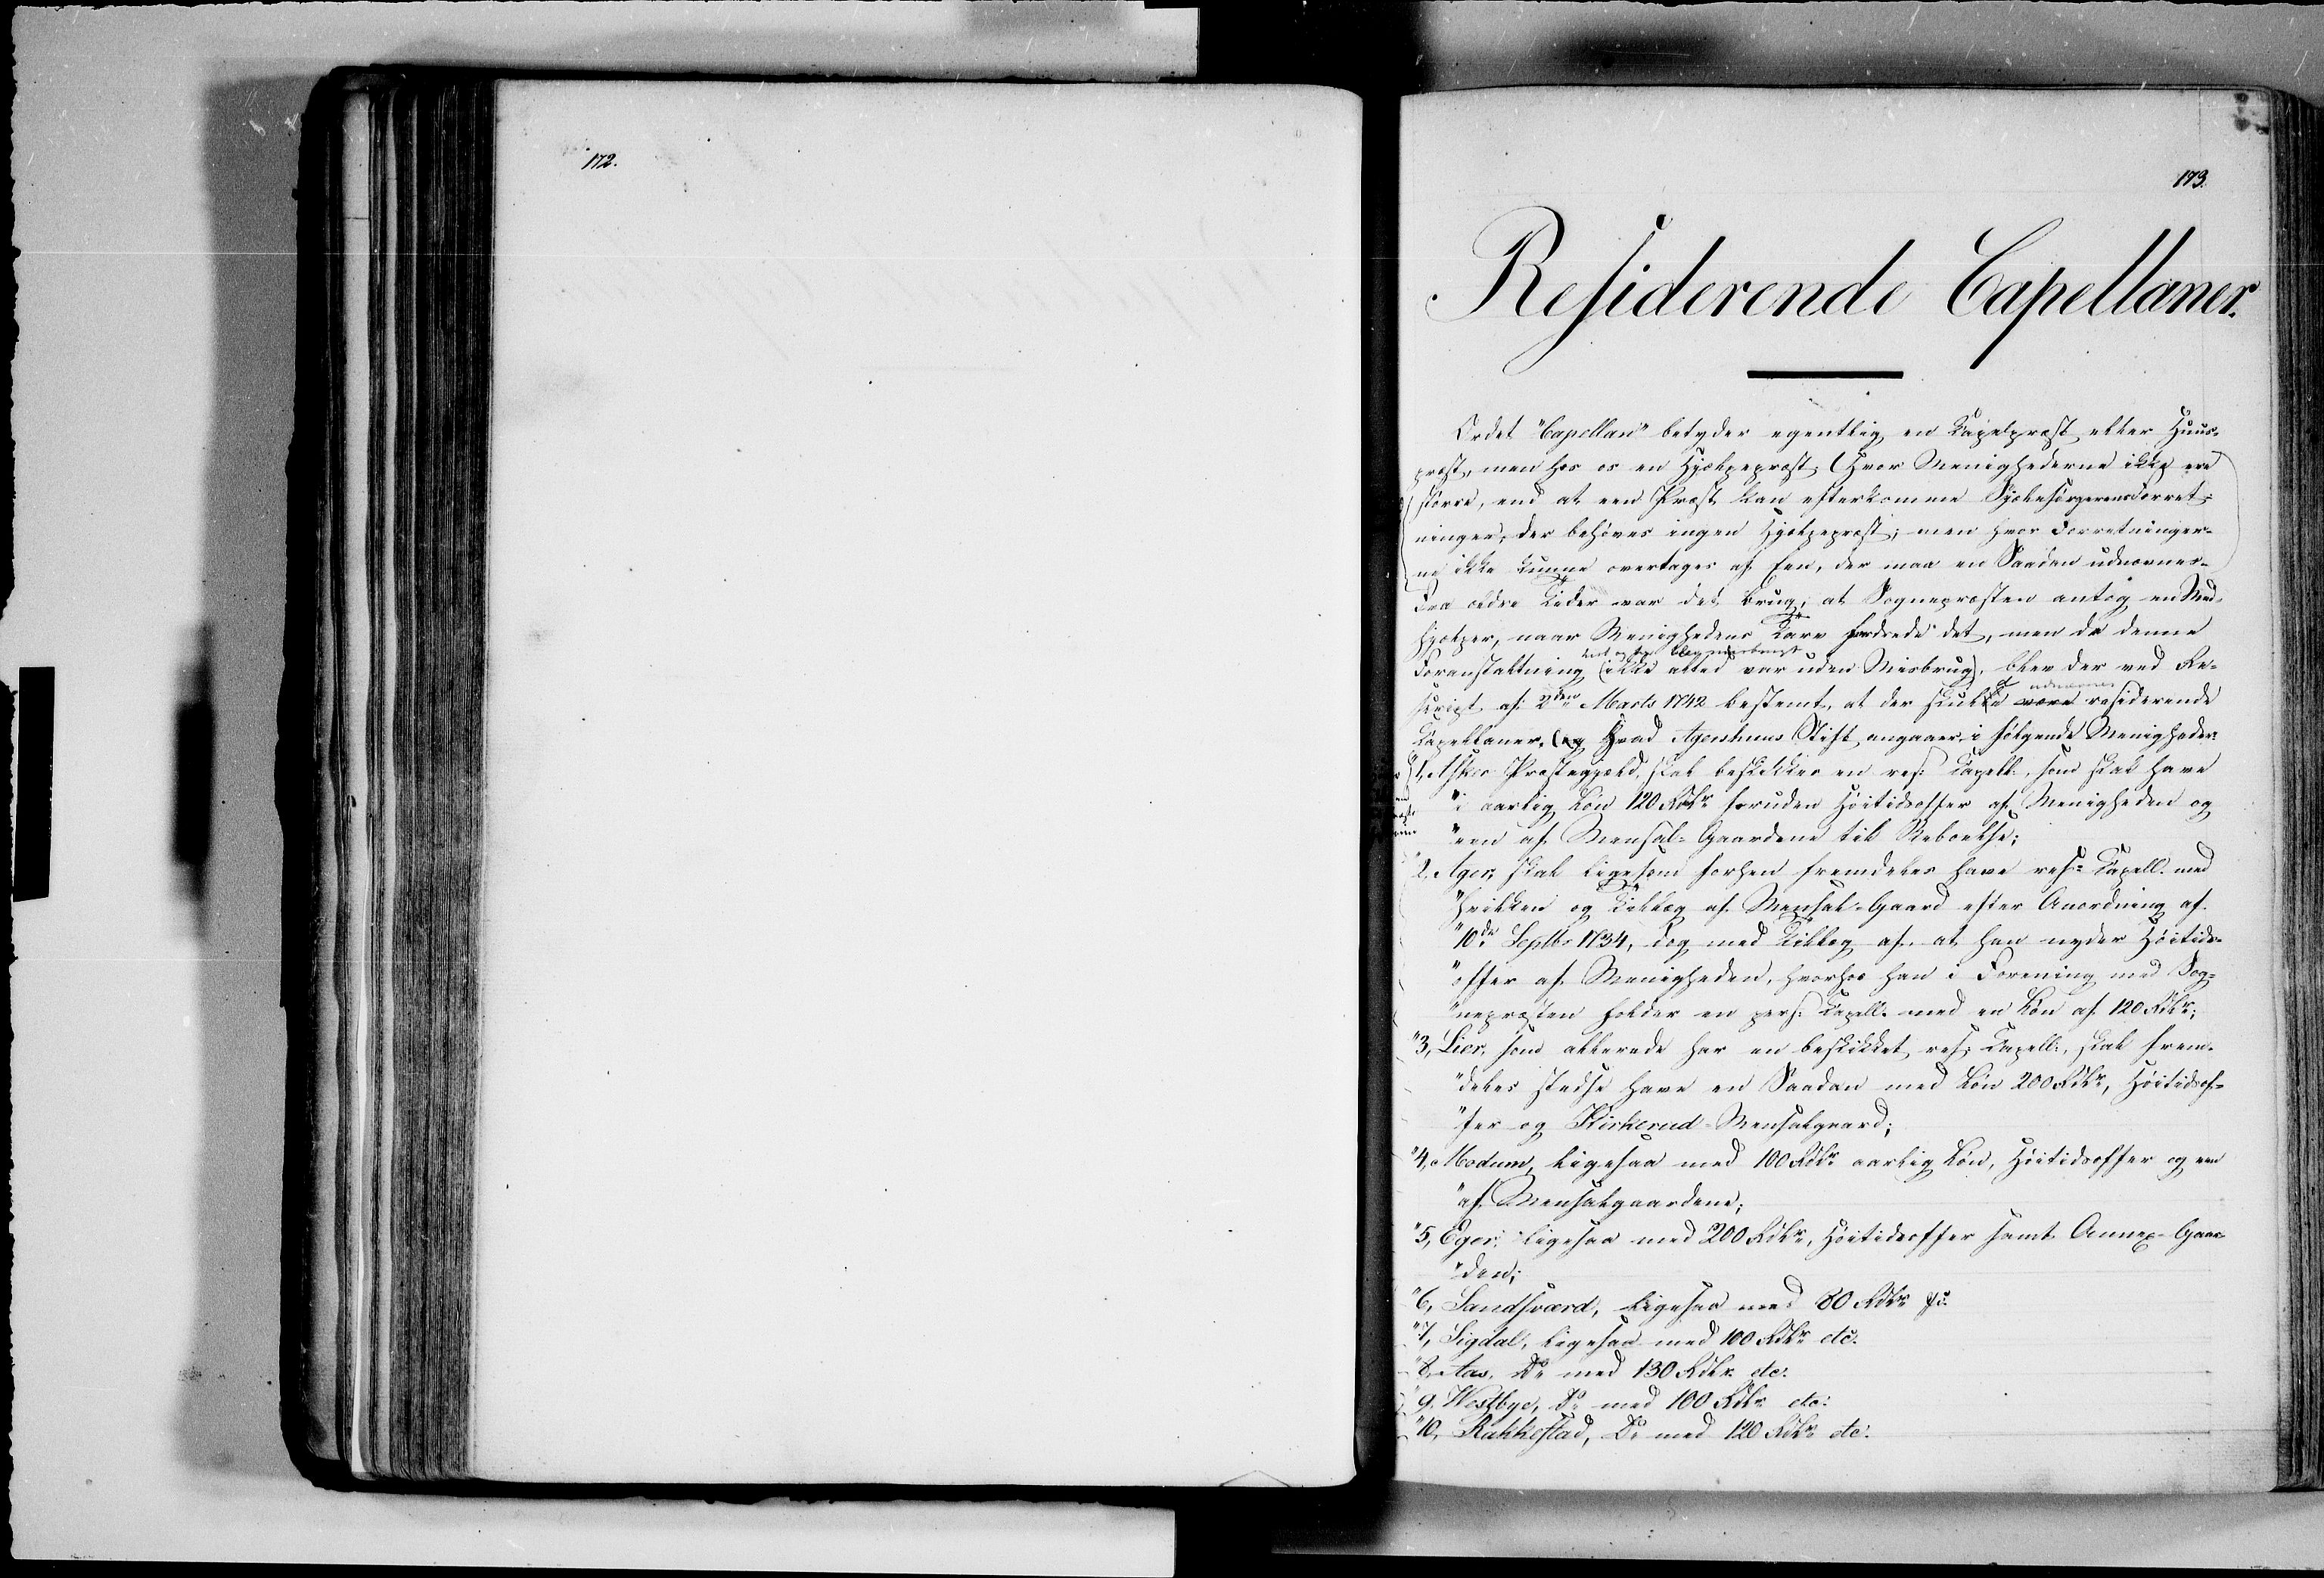 172.
173.
Residerende Capellaner.
Ordet "Capellan" betyder egentlig en Kapelpræst eller Huus-
præst, men hos os en Hjælpepræst. (Hvor Menighederne ikke ere
større, end at een Præst kan efterkomme Sjælesørgerens Forret-
ninger, der behøves ingen Hjælpepræst; men hvor Forretninger-
ne ikke kunne overtages af Een, der maa en Saadan udnævnes.)
Fra ældre Tider var det Brug, at Sognepræsten antog en Med-
hjælper, naar Menighedens Tarv fordrede det, men da denne
Foranstaltning (ikke altid var uden Misbrug), blev der ved Re-
script af 2den Marts 1742 bestemt, at der skulde være residerende
udnævnes
Kapellaner, (og Hvad Agershuus Stift angaaer, i følgende Menigheder:
"1, Asker Præstegjeld, skal beskikkes en res: Kapell:, som skal have
"i aarlig Løn 120 Rdlr foruden Høitidsoffer af Menigheden og
"een af Mensal-Gaardene til Beboelse;
"2. Ager, skal ligesom forhen fremdeles have res: Kapell: med
"hvilken og Tillæg af Mensal-Gaard efter Anordning af
"10de Septbr 1734, dog med Tillæg af, at han nyder Høitids-
"offer af Menigheden, hvorhos han i Forening med Sog-
"nepræsten holder en pers: Kapell: med en Løn af 120 Rdlr;
"3, Lier, som allerede har en beskikket res: Kapell:, skal frem-
"deles stedse have en Saadan med Løn 200 Rdlr, Høitidsof-
"fer og Kirkerud-Mensalgaard;
"4, Modum, ligesaa med 100 Rdlr aarlig Løn, Høitidsoffer og een
"af Mensalgaardene;
"5, Eger, ligesaa med 200 Rdlr, Høitidsoffer samt Annex-Gaar-
"den;
"6, Sandsværd, ligesaa med 80 Rdlr &c.
"7, Sigdal, ligesaa med 100 Rdlr etc.
"8, Aas, Do med 130 Rdlr etc.
"9, Westbye, Do med 100 Rdlr etc:
"10, Rakkestad, Do med 120 Rdlr etc.